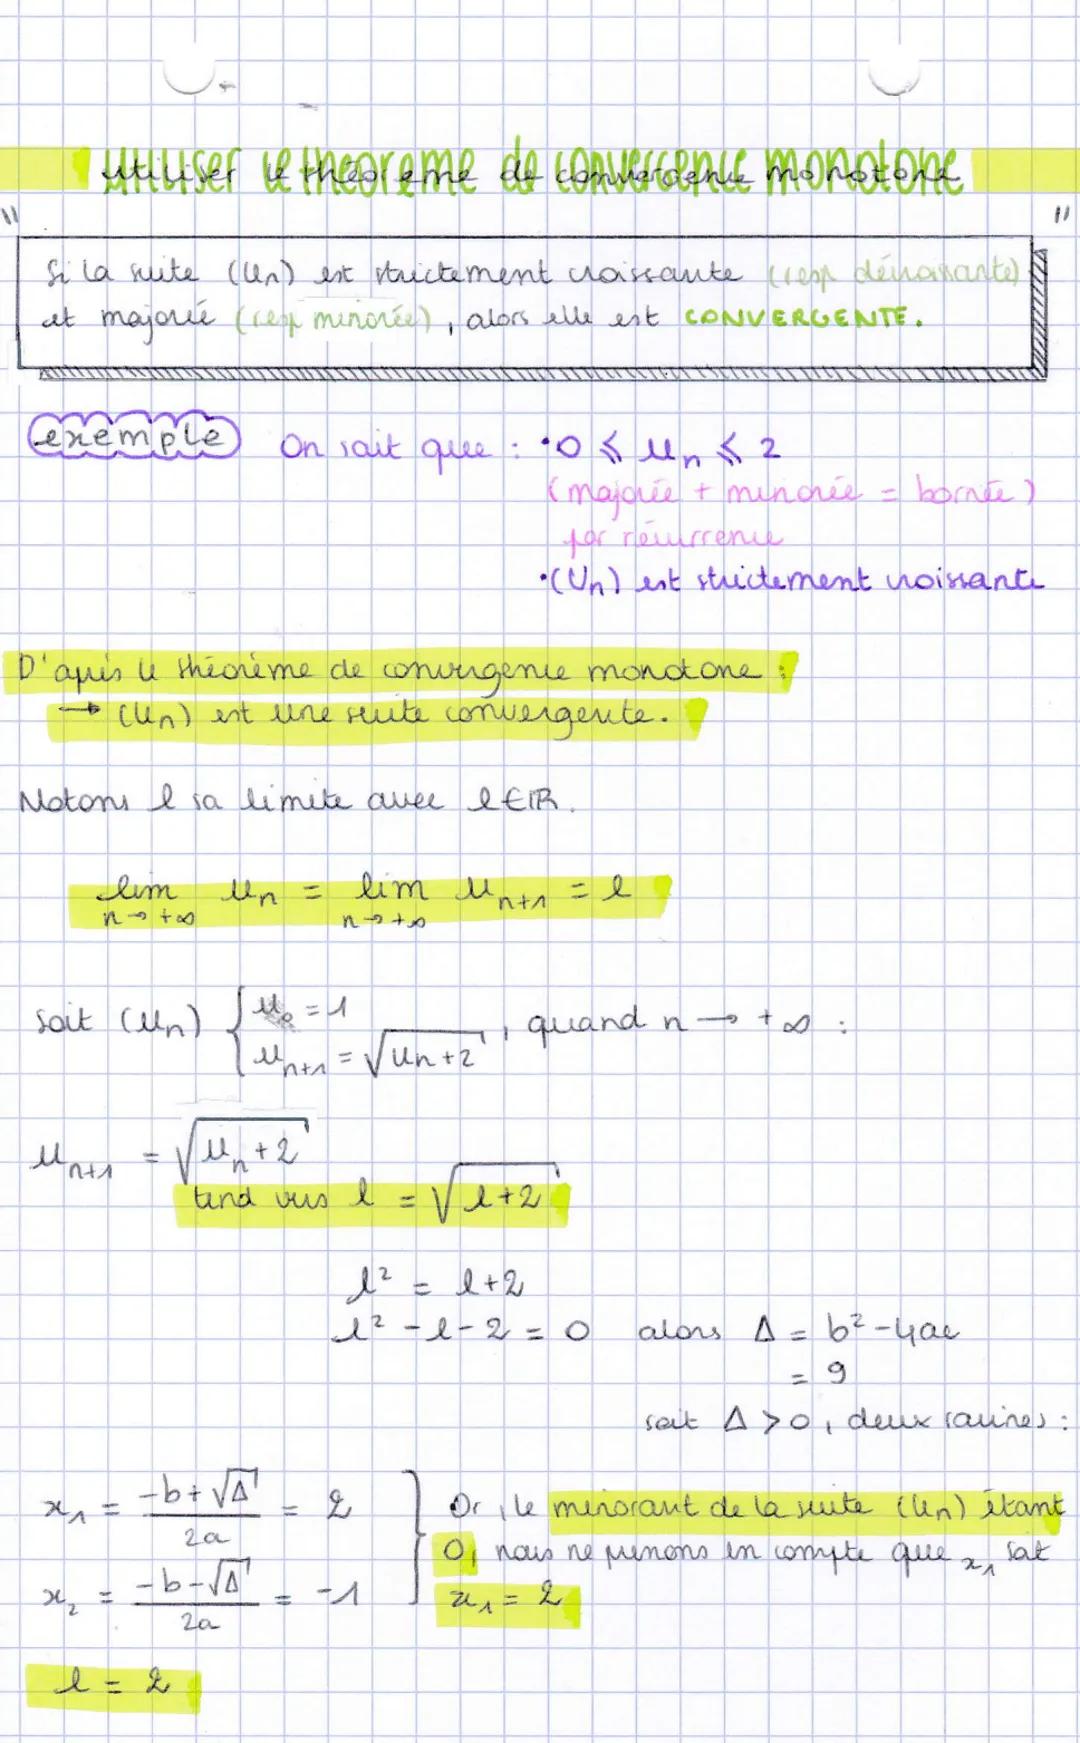 Utiliser le théorème de convergence monotone
"
"
Si la suite (Un) est strictement croissante (resp décroissante)
et majorée (resp minorée), alors elle est CONVERGENTE.
exemple On sait que : • 0 ⩽ Un ⩽ 2
(majorée + minorée = bornée)
par récurrence
• (Un) est strictement croissante
D'après le théorème de convergence monotone :
→ (Un) est une suite convergente.
Notons l sa limite avec l ∈ IR.
lim Un = lim Un+1 = l
n→+∞ n→+∞
Soit (Un) { U0 = 1
Un+1 = √(Un+2) , quand n → +∞ :
Un+1 = √(Un+2)
tend vers l = √(l+2)
l² = l+2
l² - l - 2 = 0 alors Δ = b² - 4ac
= 9
soit Δ > 0, deux racines :
x1 = (-b+√Δ)/2a = 2
x2 = (-b-√Δ)/2a = -1
Or, le minorant de la suite (Un) étant
0, nous ne prenons en compte que x1 soit
x1 = 2
l = 2